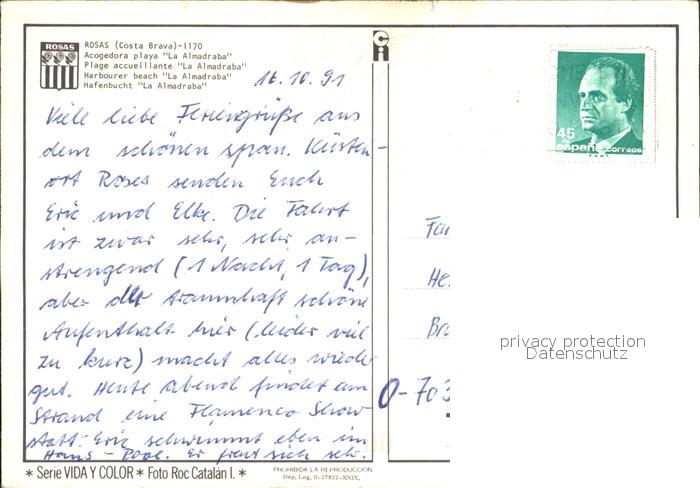 ROSAS
ROSAS (Costa Brava)-1170
Acogedora playa "La Almadraba"
Plage accueillante "La Almadraba"
Harbourer beach "La Almadraba"
Hafenbucht "La Almadraba"
16.10.91
Viele liebe Feriengrüße aus
dem schönen span. Küsten-
ort Roses senden Euch
Eric und Elke. Die Fahrt
ist zwar sehr, sehr an-
strengend (1 Nacht, 1 Tag),
aber der traumhaft schöne
Aufenthalt hier (leider viel
zu kurz) macht alles wieder
gut. Heute abend findet am
Strand eine Flamenco Show
statt. Eric schwimmt eben im
Haus-Pool. Er freut sich sehr.
45
españa correos
Fam
He
Br
O-703
privacy protection
Datenschutz
* Serie VIDA Y COLOR * Foto Roc Catalán I. *
PROHIBIDA LA REPRODUCCION
Dep. Leg. B-27822-XXIX